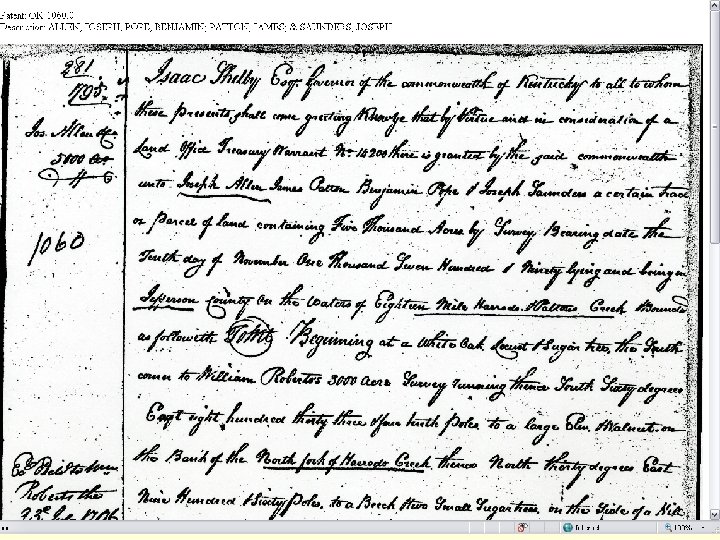 Patent: OK 1060.0
Description: ALLEN, JOSEPH; POPE, BENJAMIN; PATTON, JAMES; & SAUNDERS, JOSEPH
281
795
Jos. Allen &c
5000 acs
1060
Isaac Shelby Esqr. Governor of the commonwealth of Kentucky to all to whom
these Presents shall come greeting Know ye that by Virtue and in consideration of a
Land Office Treasury Warrant No. 14200 there is granted by the said commonwealth
unto Joseph Allen James Patton Benjamin Pope & Joseph Saunders a certain tract
or Parcel of Land containing Five Thousand Acres by Survey Bearing date the
Tenth day of November One Thousand Seven Hundred & Ninety lying and being in
Jefferson County On the Waters of Eighteen Mile Harrods & Pattons Creek & Bounded
as followeth To Wit Beginning at a White Oak, Locust & Sugar tree, the South
corner to William Roberts's 3000 Acre Survey running thence South Sixty degrees
East eight hundred thirty three & four tenth Poles to a large Elm & Walnut on
the Bank of the North fork of Harrods Creek thence North thirty degrees East
Nine Hundred & Sixty Poles, to a Beech & two Small Sugar trees, on the Side of a
Roberts the
100%